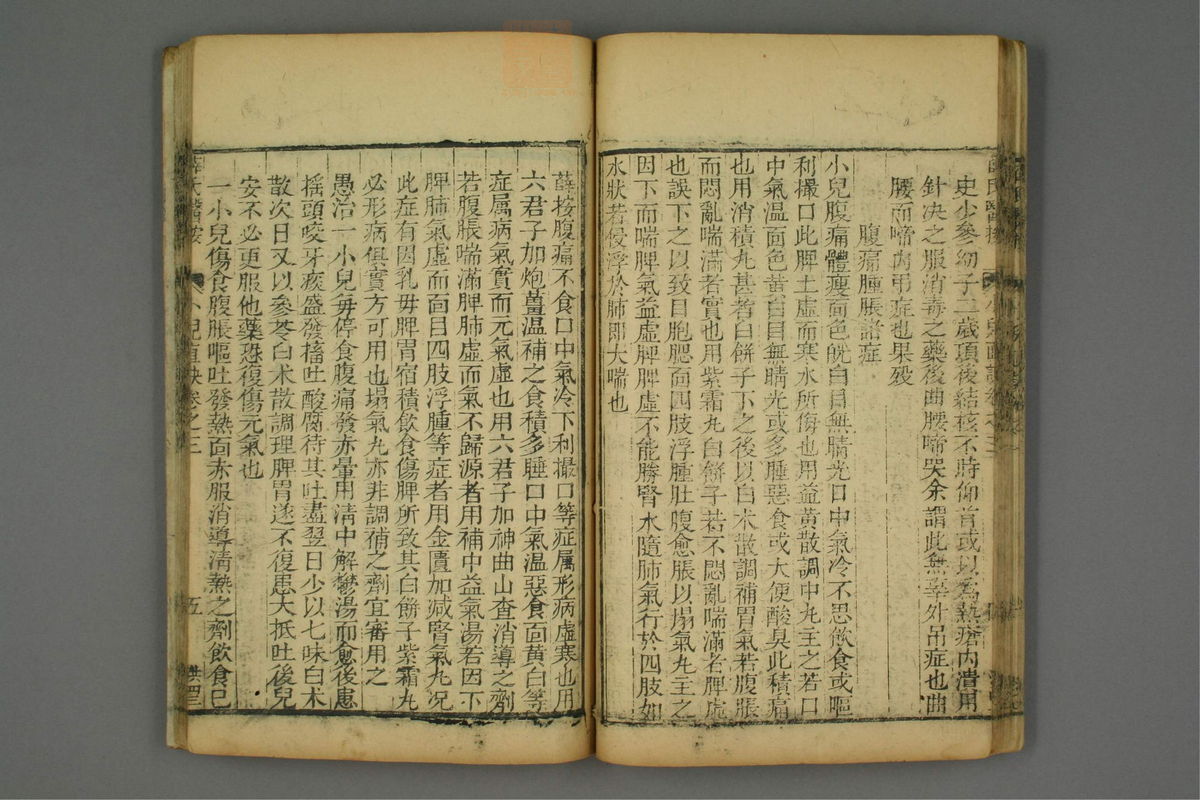 史少參幼子二歲項後結核不時仰首或以為熱瘡內潰用
針決之服消毒之藥後曲腰啼哭余謂此無辜外吊症也曲
腰而啼內吊症也果歿
腹痛腫脹諸症
小兒腹痛體瘦面色㿠白目無睛光口中氣冷不思飲食或嘔
利撮口此脾土虛而寒水所侮也用益黃散調中丸主之若口
中氣溫面色黃白目無睛光或多睡惡食或大便酸臭此積痛
也用消積丸甚者白餅子下之後以白术散調補胃氣若腹脹
而悶亂喘滿者實也用紫霜丸白餅子若不悶亂喘滿者脾虛
也誤下之以致目胞腮面四肢浮腫肚腹愈脹以塌氣丸主之
因下而喘脾氣益虛脾脾虛不能勝腎水隨肺氣行於四肢如
水狀若侵浮於肺即大喘也
薛按腹痛不食口中氣冷下利撮口等症属形病虛寒也用
六君子加炮薑溫補之食積多睡口中氣溫惡食面黄白等
症属病氣實而元氣虛也用六君子加神曲山查消導之劑
若腹脹喘滿脾肺虛而氣不歸源者用補中益氣湯若因下
脾肺氣虛而面目四肢浮腫等症者用金匱加減腎氣丸况
此症有因乳毋脾胃宿積飲食傷脾所致其白餅子紫霜丸
必形病俱實方可用也塌氣丸亦非調補之劑宜審用之
愚治一小兒每停食腹痛發赤暈用清中解鬱湯而愈後患
摇頭咬牙痰盛發搐吐酸腐待其吐盡翌日少以七味白术
散次日又以參苓白术散調理脾胃遂不復患大抵吐後兒
安不必更服他藥恐復傷元氣也
一小兒傷食腹脹嘔吐發熱面赤服消導清熱之劑飲食已
薛氏醫按
小兒直訣卷之三
五